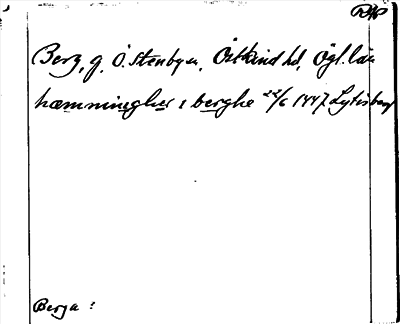 Berg, g. Ö. Stenby sn, Östkind hd, Ögl. län
hæmminegher i berghe 22/6 1447 Lytisberg
Berga :